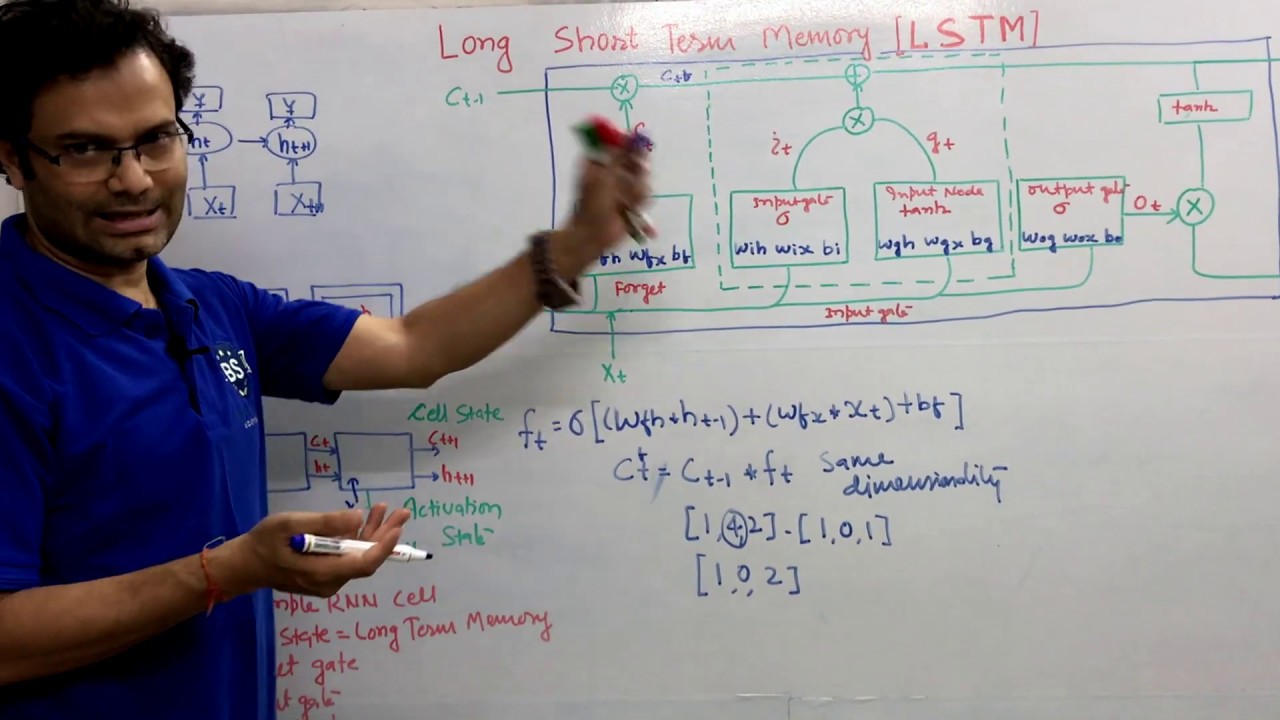 Long Short Term Memory [LSTM]
Ct-1
Ct
f
t
it
gt
tanh
Input gate
σ
Wih Wix bi
Input Node
tanh
Wgh Wgx bg
output gate
σ
Wog Wox bo
Ot
fh Wfx bf
Forget
Input gate
Xt
Y
Y
ht
ht+1
Xt
Xt+1
BS
Cell State
Ct
Ct+1
ht
ht+1
Activation
State
ft = σ[(Wfh*ht-1)+(Wfx*xt)+bf]
Ctf = Ct-1 * ft Same
dimensionality
[1,4,2] . [1,0,1]
[1,0,2]
mple RNN Cell
State = Long Term Memory
et gate
ut gate